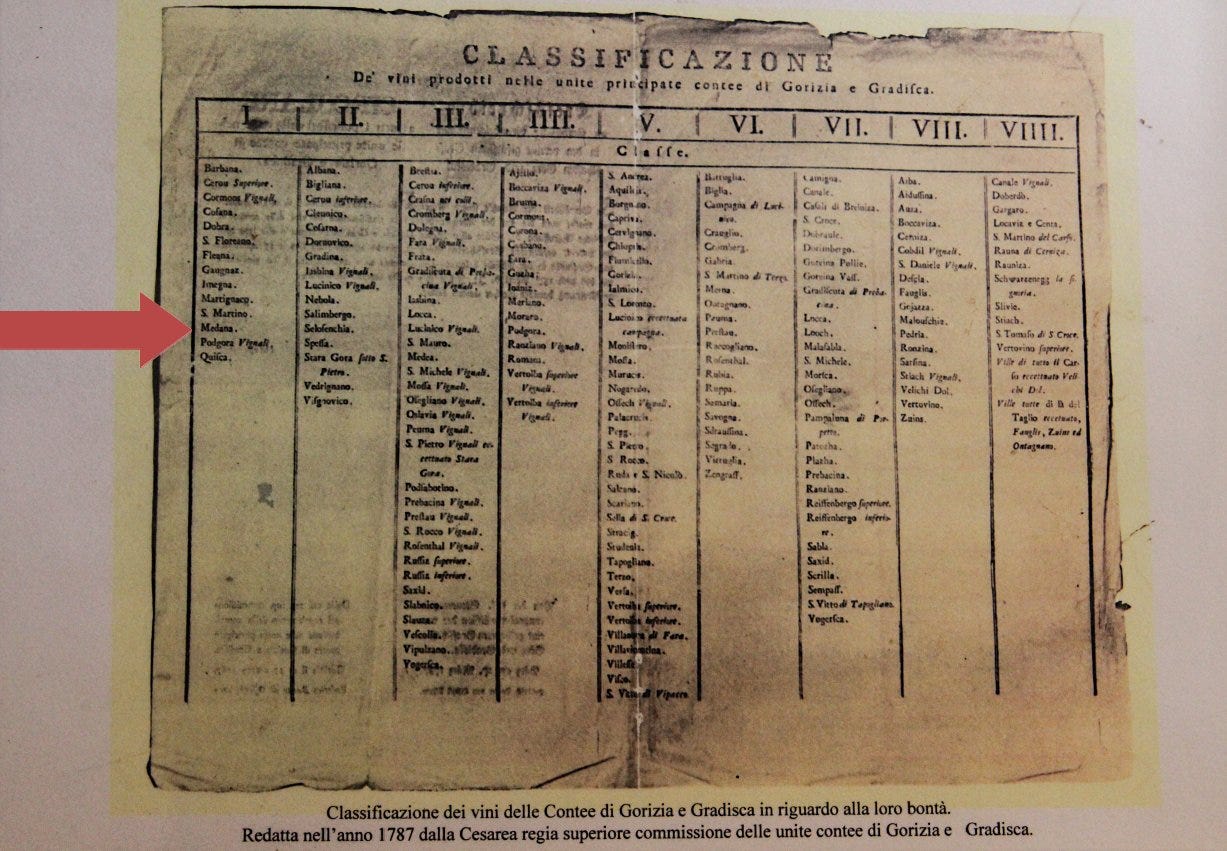 CLASSIFICAZIONE
De' vini prodotti nelle unite principate contee di Gorizia e Gradiſca.
I. | II. | III. | IIII. | V. | VI. | VII. | VIII. | VIIII.
Claſſe.
Barbana.
Cerou Superiore.
Cormons Vignali.
Coſana.
Dobra.
S. Floreano.
Fleana.
Gaugnaz.
Imegna.
Martignaco.
S. Martino.
Medana.
Podgora Vignali.
Quiſca.
Albana.
Bigliana.
Cerou inferiore.
Cleunico.
Coſarna.
Dornovico.
Gradina.
Iasbina Vignali.
Lucinico Vignali.
Nebola.
Salimbergo.
Seloſenchia.
Speſſa.
Stara Gora ſotto S.
Pietro.
Vedrignano.
Viſgnovico.
Breſtia.
Cerou inferiore.
Craſna nei colli.
Cromberg Vignali.
Dolegna.
Fara Vignali.
Frata.
Gradiſcuta di Preba-
cina Vignali.
Iasbina.
Locca.
Lucinico Vignali.
S. Mauro.
Medea.
S. Michele Vignali.
Moſſa Vignali.
Oſegliano Vignali.
Oslavia Vignali.
Peuma Vignali.
S. Pietro Vignali ec-
cettuato Stara
Gora.
Podſabotino.
Prebacina Vignali.
Preſtau Vignali.
S. Rocco Vignali.
Roſenthal Vignali.
Ruſſiz ſuperiore.
Ruſſiz inferiore.
Saxid.
Slabnico.
Slauza.
Veſcollo.
Vipulzano.
Vogerſca.
Ajello.
Boccaviza Vignali.
Bruma.
Cormons.
Corona.
Fara.
Ioaniz.
Meriano.
Moraro.
Podgora.
Ranziano Vignali.
Romans.
Vertoiba ſuperiore
Vignali.
Vertoiba inferiore
Vignali.
S. Andrea.
Aquileia.
Borgnano.
Capriva.
Cervignano.
Chiopris.
Fiumicello.
Ialmico.
S. Lorenzo.
Lucinico eccettuata
campagna.
Monaſtero.
Moſſa.
Muraco.
Nogaredo.
Oſſech Vignali.
S. Pietro.
S. Rocco.
Ruda e S. Nicolò.
Salcano.
Sella di S. Croce.
Tapogliano.
Terzo.
Verſa.
Vertoiba ſuperiore.
Vertoiba inferiore.
Villanova di Fara.
Villavicentina.
Villeſſe.
Viſco.
S. Vito di Vipacco.
Battuglia.
Biglia.
Campagna di Luci-
nico.
Crauglio.
Cromberg.
Gabria.
S. Martino di Terzo.
Merna.
Peuma.
Preſtau.
Roccogliano.
Roſenthal.
Rubia.
Ruppa.
Samaria.
Savogna.
Sdrauſſina.
Segrado.
Viſcoglia.
Zengraff.
Camigna.
Canale.
Caſali di Breiniza.
S. Croce.
Dobraule.
Dorimbergo.
Goreina Pollie.
Goreina Vaſſ.
Gradiſcuta di Preba-
cina.
Locca.
Looch.
Malaſabla.
S. Michele.
Morſca.
Oſegliano.
Oſſech.
Pampaluna di Pre-
Prebacina.
Ranziano.
Reiffenbergo ſuperiore.
Reiffenbergo inferio-
re.
Sabla.
Saxid.
Scrilla.
Sempaſſ.
S. Vitto di Tapogliano.
Vogerſca.
Aiba.
Aiduſſina.
Auza.
Boccaviza.
Cerniza.
Cobdil Vignali.
S. Daniele Vignali.
Deſcla.
Fauglis.
Gojazza.
Malouſchie.
Podria.
Ronzina.
Sarſina.
Stiach Vignali.
Velichi Dol.
Vertovino.
Zuins.
Canale Vignali.
Doberdò.
Gargaro.
Locaviz e Centa.
S. Martino del Carſo.
Rauna di Cerniza.
Rauniza.
Schwarzenegg la ſi-
gnoria.
Slivie.
Stiach.
S. Tomaſo di S. Croce.
Vertovino ſuperiore.
Ville di tutto il Car-
ſo eccettuato Veli-
chi Dol.
Ville tutte di là del
Taglio eccettuato,
Fauglis, Zuins ed
Ontagnano.
Classificazione dei vini delle Contee di Gorizia e Gradisca in riguardo alla loro bontà.
Redatta nell'anno 1787 dalla Cesarea regia superiore commissione delle unite contee di Gorizia e Gradisca.